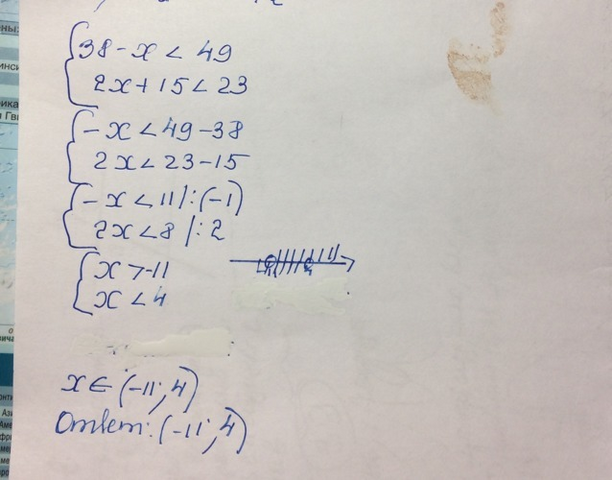 38-x<49
2x+15<23
-x<49-38
2x<23-15
-x<11|:(-1)
2x<8|:2
x>-11
x<4
x∈(-11;4)
Ответ: (-11;4)